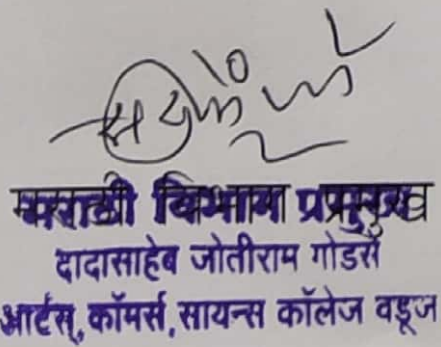 मराठी विभाग प्रमुख
दादासाहेब जोतीराम गोडसे
आर्टस्, कॉमर्स, सायन्स कॉलेज वडूज